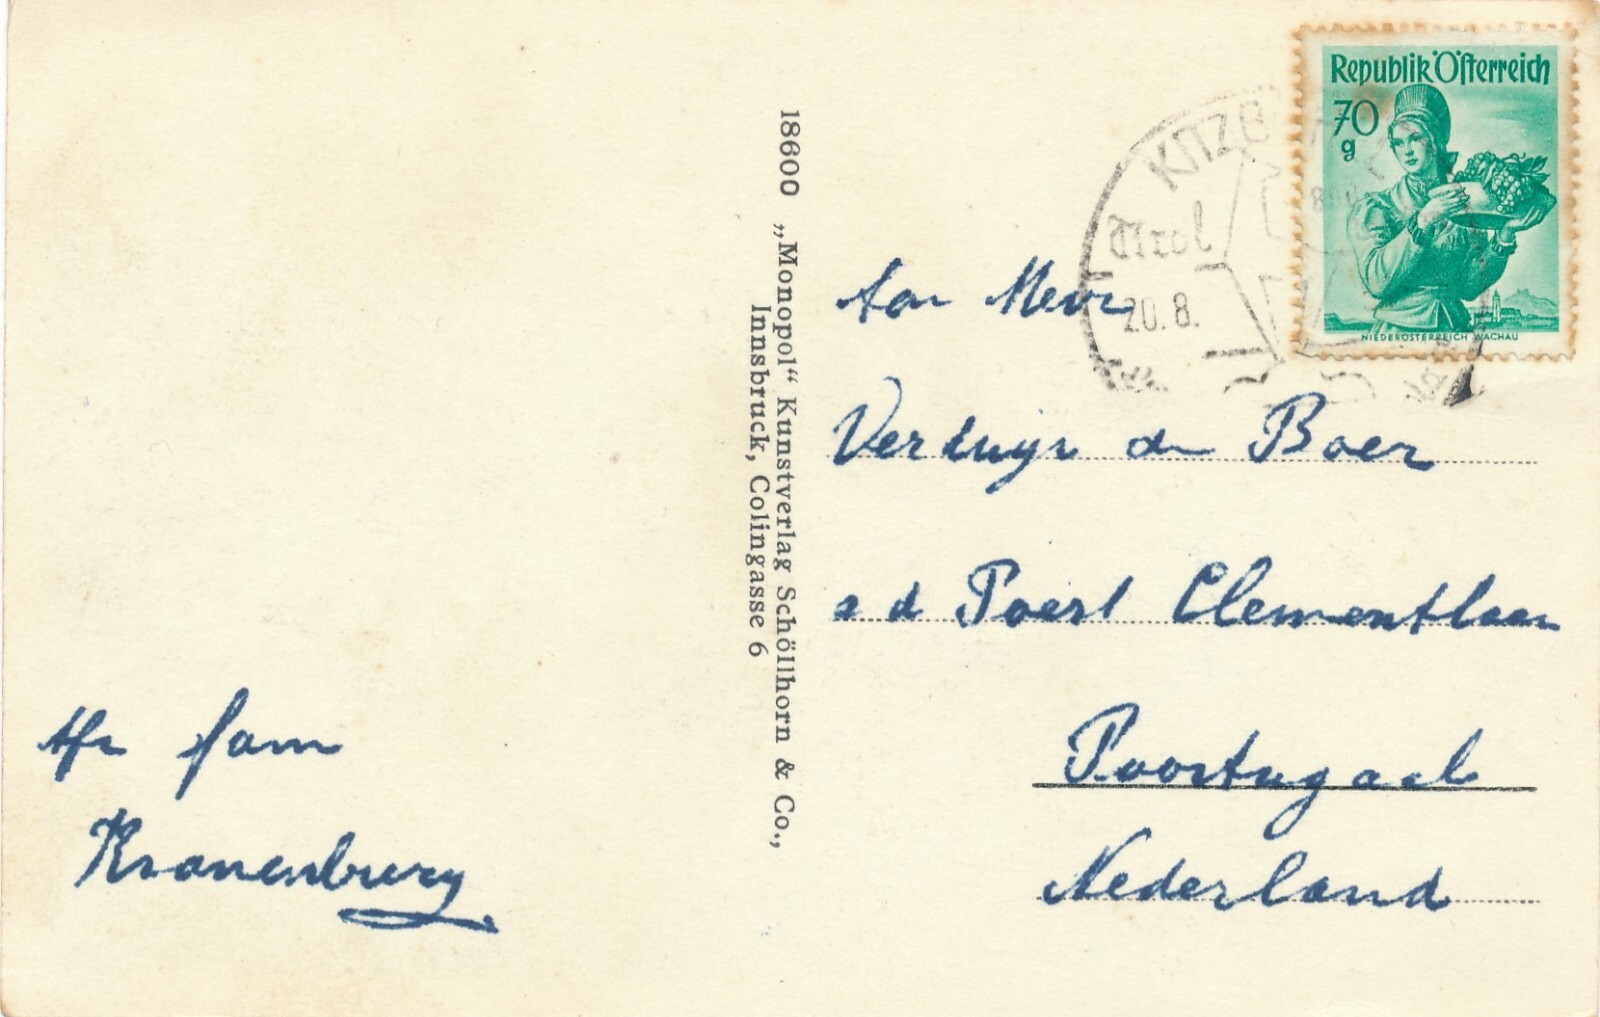 Republik Österreich
70
g
NIEDERÖSTERREICH WACHAU
KITZB
Tirol
20.8.
18600 „Monopol“ Kunstverlag Schöllhorn & Co.,
Innsbruck, Colingasse 6
Aan Mevr
Verduyn den Boer
a d Poest Clementlaan
Poortugaal
Nederland
fam
Kranenburg